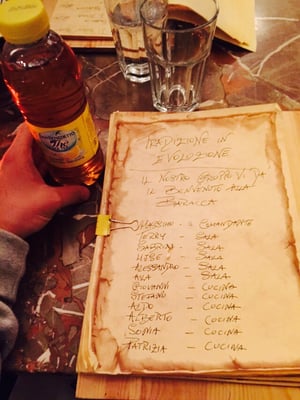 SAN BENEDETTO
TRADIZIONE IN
EVOLUZIONE
IL NOSTRO GRUPPO VI DA
IL BENVENUTO ALLA
BARACCA
MASSIMO - COMANDANTE
TERRY - SALA
SABRINA - SALA
- SALA
ALESSANDRO - SALA
- SALA
GIOVANNI - CUCINA
STEFANO - CUCINA
ALDO - CUCINA
ALBERTO - CUCINA
SONIA - CUCINA
PATRIZIA - CUCINA